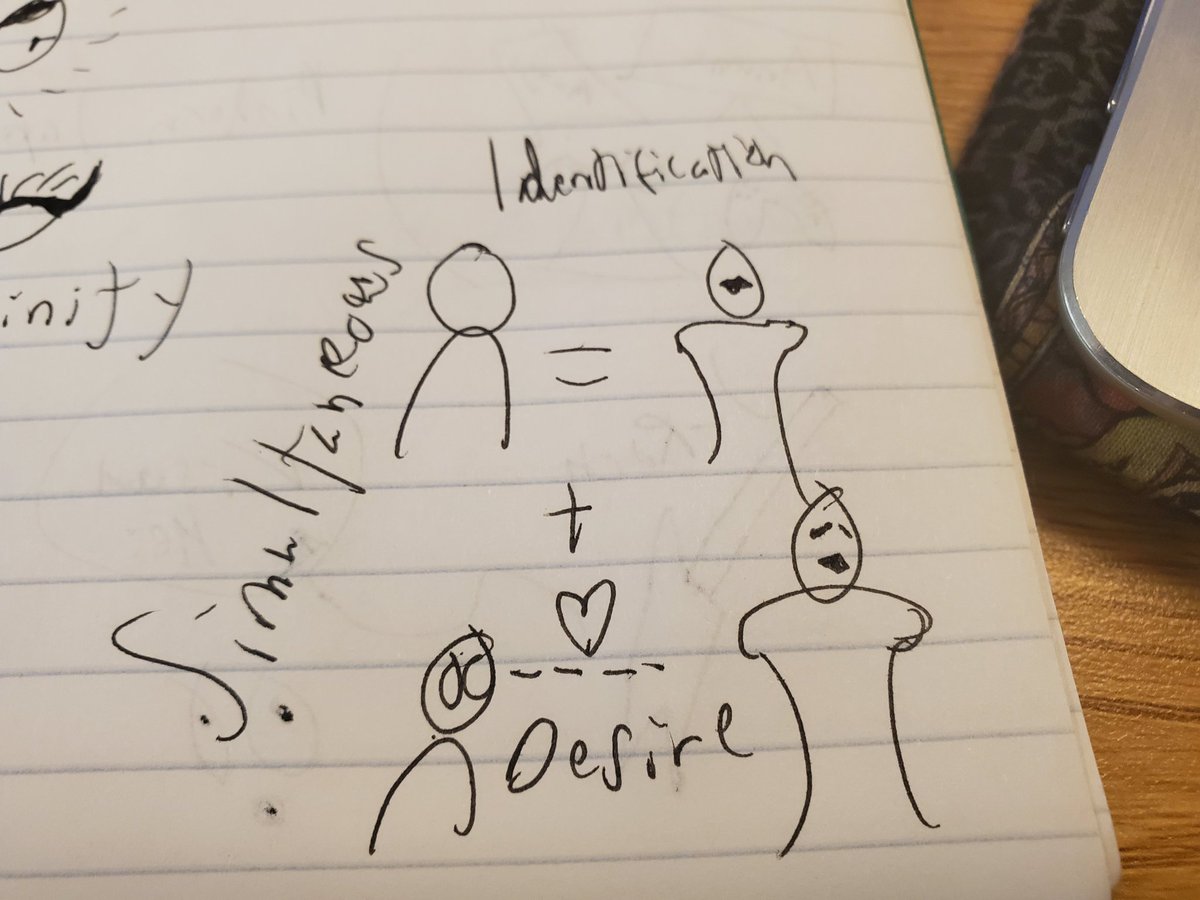 Identification
inity
Simultaneous
=
+
Desire